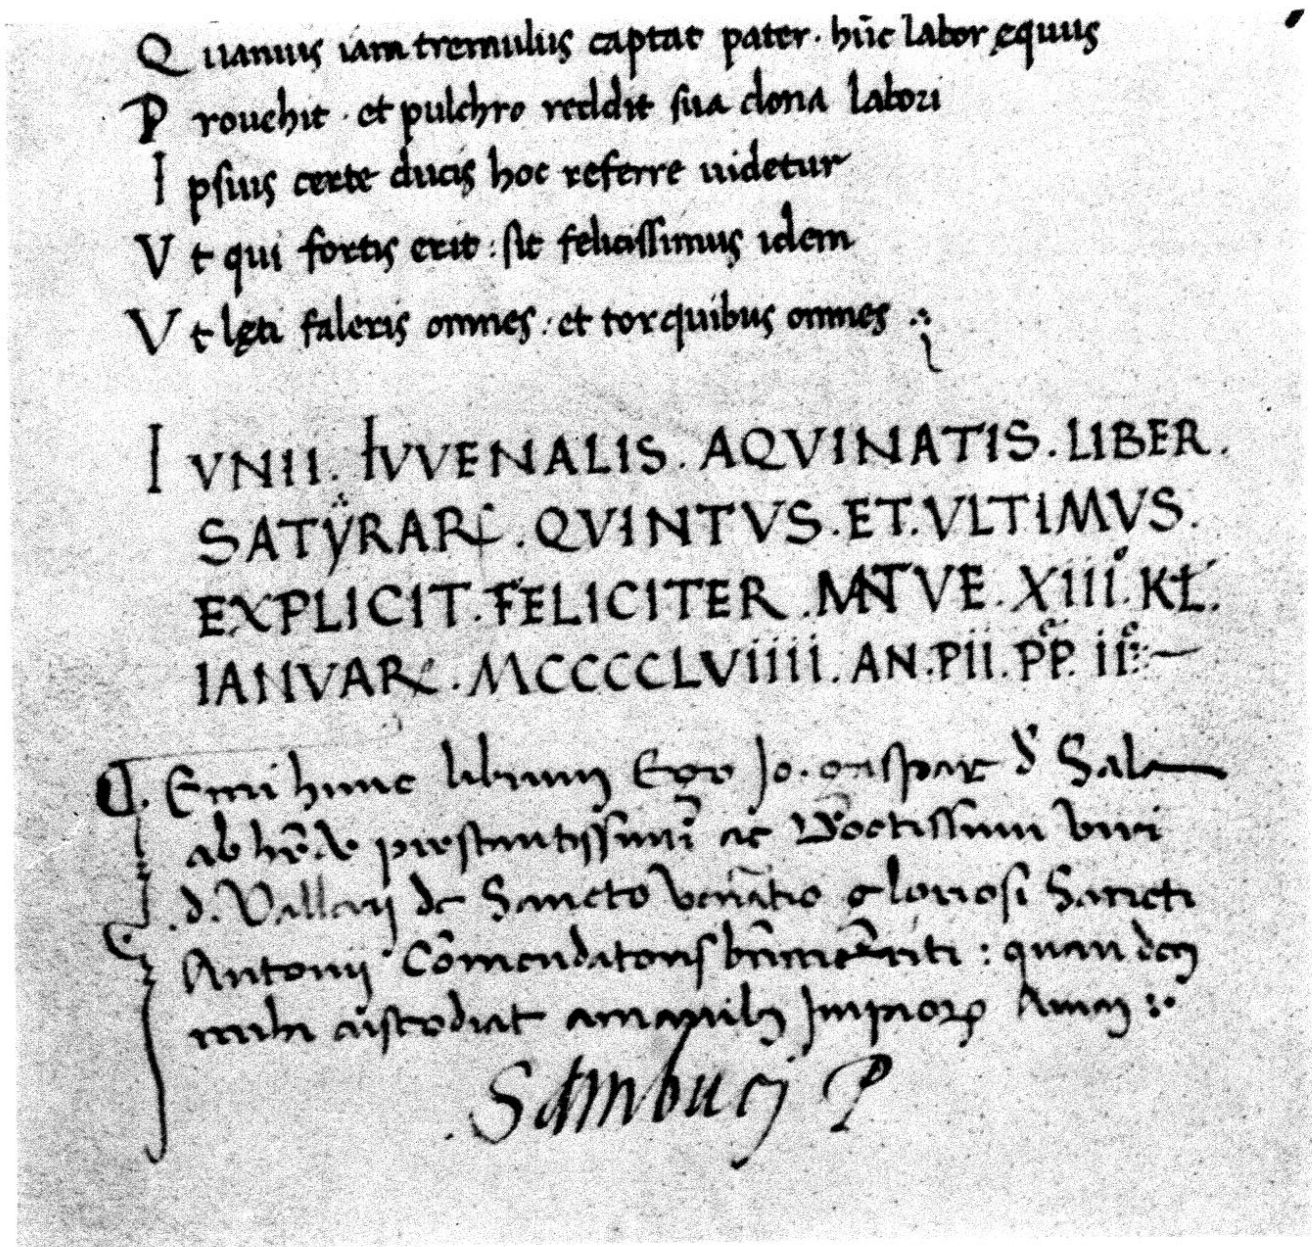 Quamuis iam tremulus captat pater. hūc labor ęquus
Prouehit. et pulchro reddit sua dona labori
Ipsius certe ducis hoc referre uidetur
Vt qui fortis erit: sit felicissimus idem
Vt lęti faleris omnes: et torquibus omnes
IVNII. IVVENALIS. AQVINATIS. LIBER.
SATYRARꝜ. QVINTVS. ET. VLTIMVS.
EXPLICIT. FELICITER. MANTVE. XIIII°. KŁ.
IANVARꝜ. MCCCCLVIIII. AN. PII. PP. II
Emi hunc librum Ego Jo. gaspar d' Sala
ab hēde prestantissimi ac Doctissimi viri
d. de Sancto gloriosi Sancti
Antonij Cōmendatoris : quem deus
mihi custodiat a manibꝫ Impioꝝ Amen
Sambuci P